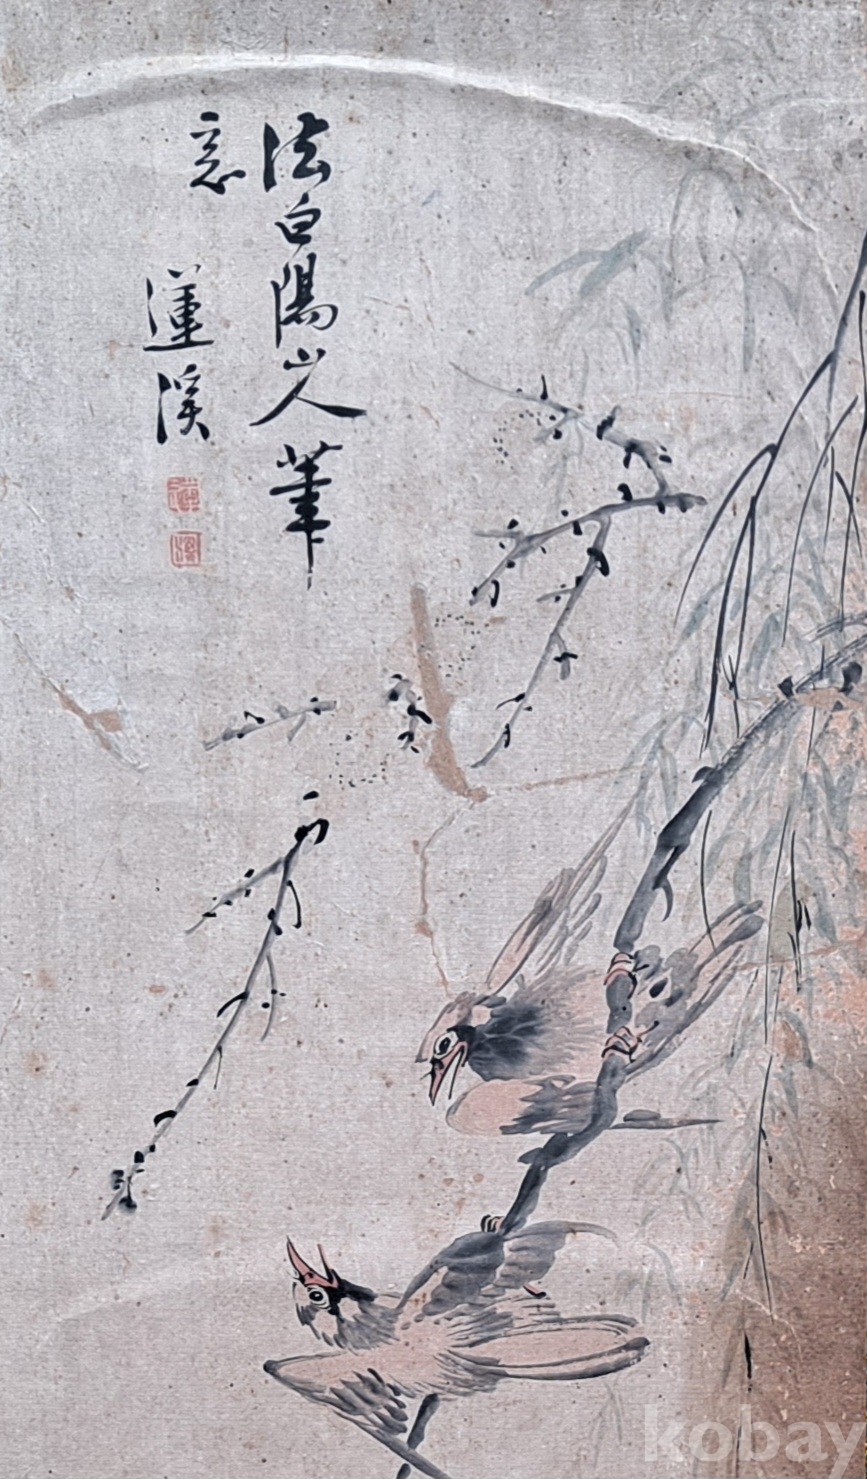 法白陽山人筆
意
蓮溪
蓮
溪
kobay